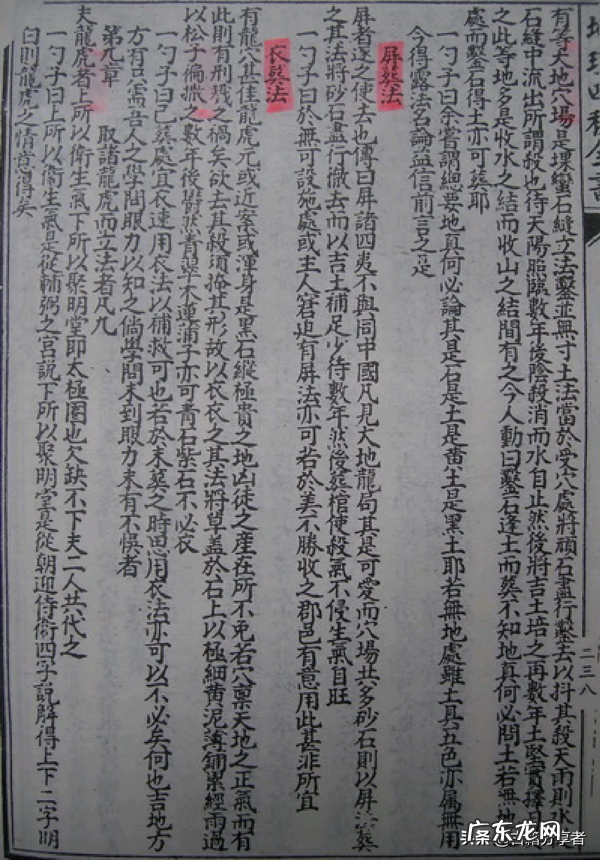 地理四秘全書
二三八
有等天地穴場是壈蠻石縫立法鑿並無寸土法當於受穴處將頑石盡行鑿去以抖其殺天雨則水
石縫中流出所謂殺也待天陽照臨數年後陰殺消而水自止然後將吉土培之再數年土堅實擇
之此等地多是收水之結而收山之結間有之今人動曰鑿石逢土而葬不知地真何必問土若無地
處而鑿石得土亦可葬耶
一勺子曰余嘗謂總要地真何必論其是石是土是黄土是黑土耶若無地處雖土具五色亦属無用
今得露法名論益信前言之是
屏葬法
屏者逐之使去也傳曰屏諸四夷不與同中國凡見天地龍局其是可愛而穴場共多砂石則以屏法葬
之其法將砂石盡行徹去而以吉土補足少待數年然後葬棺使殺氣不侵生氣自旺
一勺子曰於無可設施處或主人窘迫有屏法亦可若於美不勝收之郡邑有意用此甚非所宜
衣葬法
有龍穴甚佳龍虎元或近案或渾身是黑石縱極貴之地凶徒之産在所不免若穴禀天地之正氣而有
此則有刑殘之禍矣欲去其殺須掩其形故以衣衣之其法將草盖於石上以極細黄泥薄鋪累經雨過
以松子徧撒之數年後翳然青翠不連蒲子亦可青石紫石不必衣
一勺子曰已葬處宜衣速用衣法以補救可也若於未葬之時思用衣法亦可以不必矣何也吉地方
方有只需吾人之學問眼力以知之倘學問未到眼力未有不悞者
第九章 取諸龍虎而立法者凡九
夫龍虎者上所以衛生氣下所以聚明堂即太極圈也欠缺不下夫二人共代之
一勺子曰上所以衛生氣是從輔弼之宫説下所以聚明堂是從朝迎侍衛四字説解得上下二字明
白則龍虎之情意得矣
广东龙网
头条@古籍分享者